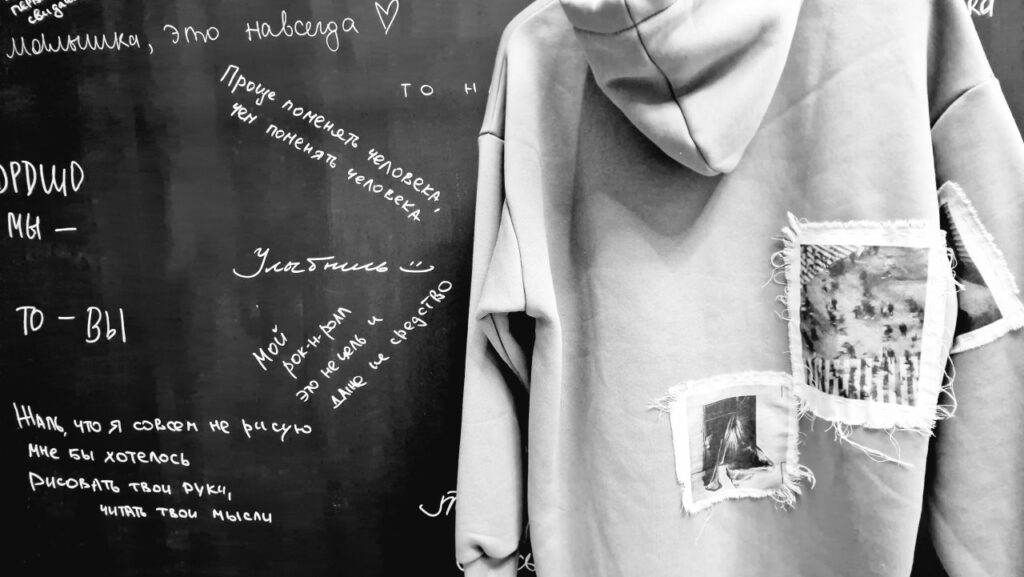 малышка, это навсегда ♡
то н
Проще поменять человека,
чем поменять человека
МЫ –
ТО – ВЫ
Улыбнись
Мой
рок-н-ролл
это не цель и
даже не средство
Жаль, что я совсем не рисую
мне бы хотелось
рисовать твои руки,
читать твои мысли